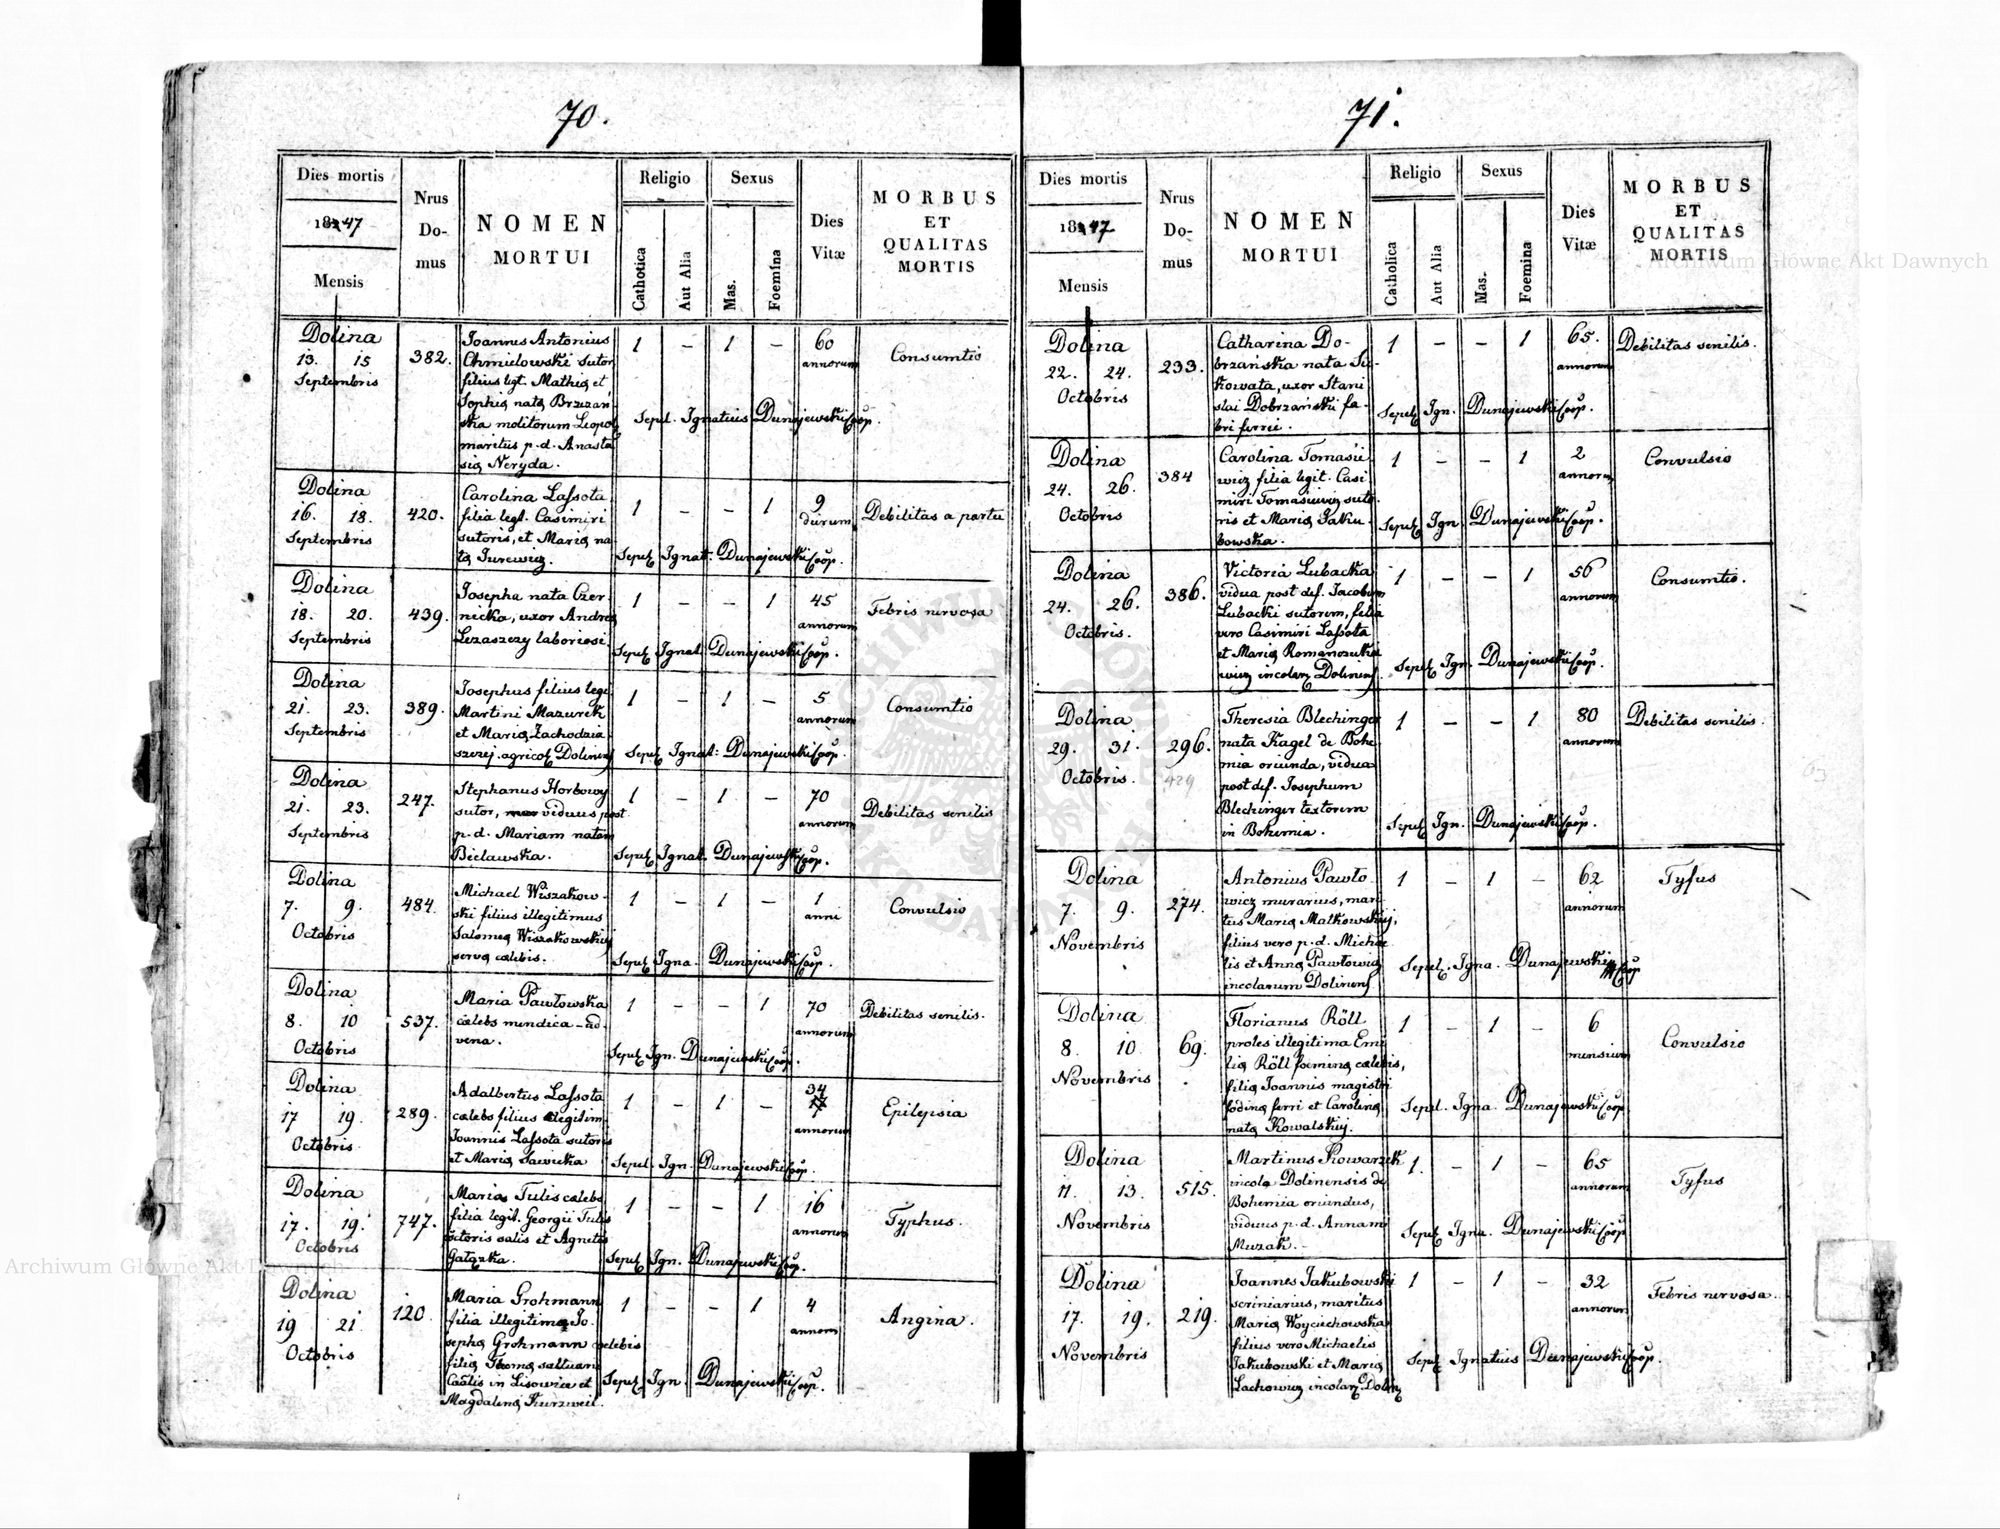 70.
Dies mortis
1847
Mensis
Nrus
Do-
mus
NOMEN
MORTUI
Religio
Catholica
Aut Alia
Sexus
Mas.
Foemina
Dies
Vitæ
MORBUS
ET
QUALITAS
MORTIS
Dolina
13. 15
Septembris
382.
Joannes Antonius
Chmielowski sutor
filius legt. Mathiæ et
Sophiæ natæ Brzezań
ska molitorum Leopol
maritus p. d. Anasta
siæ Neryda.
1 – 1 –
60
annorum
Consumtio
Sepul. Ignatius Dunajewski Coop.
Dolina
16. 18.
Septembris
420.
Carolina Lassota
filia legt. Casimiri
sutoris, et Mariæ na
tæ Jurewicz.
1 – – 1
9
dierum
Debilitas a partu
Sepul. Ignat. Dunajewski Coop.
Dolina
18. 20.
Septembris
439.
Josepha nata Czer
niecka, uxor Andreæ
Lezaszezy laboriosi.
1 – – 1
45
annorum
Febris nervosa
Sepul. Ignat. Dunajewski Coop.
Dolina
21. 23.
Septembris
389.
Josephus filius legt
Martini Mazurek
et Mariæ Zachodzia
szczej. agricol. Dolinens
1 – 1 –
5
annorum
Consumtio
Sepul. Ignat: Dunajewski Coop.
Dolina
21. 23.
Septembris
247.
Stephanus Horbowy
sutor, viduus post
p. d. Mariam natam
Bielawska.
1 – 1 –
70
annorum
Debilitas senilis
Sepul. Ignat. Dunajewski Coop.
Dolina
7. 9.
Octobris
484.
Michael Wiszakow-
ski filius illegitimus
Salomeæ Wiszakowskiej
servæ cælebis.
1 – 1 –
1
anni
Convulsio
Sepul. Igna. Dunajewski Coop.
Dolina
8. 10
Octobris
537.
Maria Pawłowska
cælebs mendica – ad
vena.
1 – – 1
70
annorum
Debilitas senilis.
Sepul. Ign. Dunajewski Coop.
Dolina
17 19.
Octobris
289.
Adalbertus Lassota
cælebs filius legitim
Joannis Lassota sutoris
et Mariæ Sawicka
1 – 1 –
34
annorum
Epilepsia
Sepul. Ign. Dunajewski Coop.
Dolina
17. 19.
Octobris
747.
Maria Tulis cælebs
filia legit. Georgii Tulis
coctoris salis et Agnetis
Gałązka.
1 – – 1
16
annorum
Typhus.
Sepul. Ign. Dunajewski Coop.
Dolina
19 21.
Octobris
120.
Maria Grohmann
filia illegitima Jo
sephæ Grohmann cælebis
filiæ Thomæ saltuarii
Caalis in Lisowice et
Magdalenæ Kurzweil.
1 – – 1
4
annorum
Angina.
Sepul. Ign. Dunajewski Coop.
71.
Dies mortis
1847
Mensis
Nrus
Do-
mus
NOMEN
MORTUI
Religio
Catholica
Aut Alia
Sexus
Mas.
Foemina
Dies
Vitæ
MORBUS
ET
QUALITAS
MORTIS
Dolina
22. 24.
Octobris
233.
Catharina Do-
brzańska nata Su-
kowata, uxor Stani
slai Dobrzański fa-
bri ferrei.
1 – – 1
65.
annorum
Debilitas senilis.
Sepul. Ign. Dunajewski Coop.
Dolina
24. 26.
Octobris
384
Carolina Tomasie
wicz filia legit. Casi
miri Tomasiewicz suto
ris et Mariæ Jaku
bowska.
1 – – 1
2
annorum
Convulsio
Sepul. Ign. Dunajewski Coop.
Dolina
24. 26.
Octobris.
386.
Victoria Lubacka
vidua post def. Jacobum
Lubacki sutorem, filia
vero Casimiri Lassota
et Mariæ Romanowie
wicz incolar. Dolinens.
1 – – 1
56
annorum
Consumtio.
Sepul. Ign. Dunajewski Coop.
Dolina
29. 31.
Octobris.
296.
429
Theresia Blechinger
nata Kagel de Bohe
mia oriunda, vidua
post def. Josephum
Blechinger textorem
in Bohemia.
1 – – 1
80
annorum
Debilitas senilis.
Sepul. Ign. Dunajewski Coop.
Dolina
7. 9.
Novembris
274.
Antonius Pawło
wicz murarius, mari
tus Mariæ Malkowskiej,
filius vero p. d. Michae
lis et Annæ Pawłowicz
incolarum Dolinens
1 – 1 –
62
annorum
Tyfus
Sepul. Igna. Dunajewski Coop
Dolina
8. 10.
Novembris
69.
Florianus Röll
proles illegitima Emi
liæ Röll foeminæ cælebis,
filiæ Joannis magistri
fodinæ ferri et Carolinæ
natæ Kowalskiej.
1 – 1 –
6
mensium
Convulsio
Sepul. Igna. Dunajewski Coop
Dolina
11. 13.
Novembris
515.
Martinus Kowarzek
incola Dolinensis de
Bohemia oriundus,
viduus p. d. Annam
Muzak. –
1. – 1 –
65
annorum
Tyfus
Sepul. Igna. Dunajewski Coop
Dolina
17. 19.
Novembris
219.
Joannes Jakubowski
scriniarius, maritus
Mariæ Woyciechowska
filius vero Michaelis
Jakubowski et Mariæ
Lachowicz incolar. Dolin.
1 – 1 –
32
annorum
Febris nervosa.
Sepul. Ignatius Dunajewski Coop.
Archiwum Główne Akt Dawnych
Archiwum Główne Akt Dawnych
ARCHIWUM GŁÓWNE AKT DAWNYCH